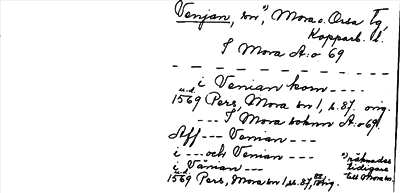 Venjan, sn, *) Mora o. Orsa tg,
Kopparb. l.
I Mora A:o 69
i Venian kom ----
u.d. 1569 Pers, Mora sn 1, s. 87. orig.
--- I Mora soknn A:o 69.
Aff --- Venian ---
i --- och Venian ---
i Vänian ---
u.d. 1569 Pers, Mora sn 1, s. 87, orig.
*) räknades
tidigare
till Mora sn.